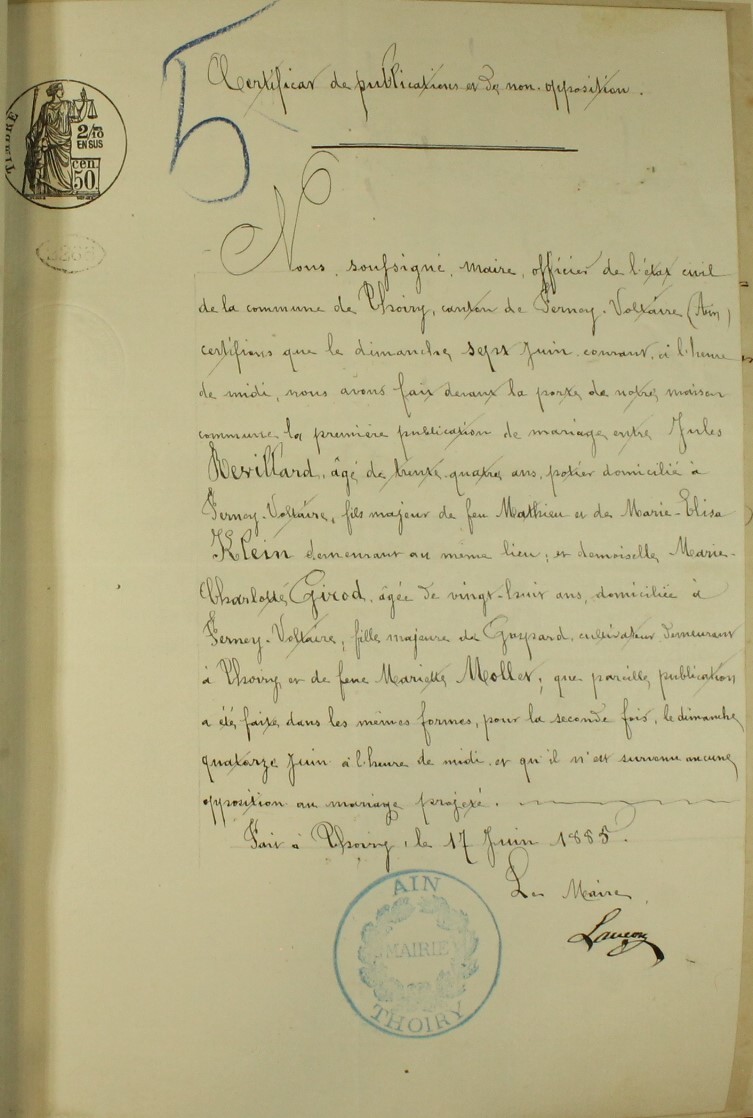 5
Certificat de publications et de non-opposition.
TIMBRE
2/10
EN SUS
50 cen.
Nous, soussigné, maire, officier de l'état civil
de la commune de Thoiry, canton de Ferney-Voltaire (Ain)
certifions que le dimanche sept Juin courant, à l'heure
de midi, nous avons fait devant la porte de notre maison
commune la première publication de mariage entre Jules
Revillard, âgé de trente-quatre ans, potier domicilié à
Ferney-Voltaire, fils majeur de feu Mathieu et de Marie-Elisa
Klein demeurant au même lieu; et demoiselle Marie-
Charlotte Girod, âgée de vingt-huit ans, domiciliée à
Ferney-Voltaire, fille majeure de Gaspard, cultivateur demeurant
à Thoiry et de feue Mariette Mollet; que pareille publication
a été faite dans les mêmes formes, pour la seconde fois, le dimanche
quatorze Juin à l'heure de midi, et qu'il n'est survenu aucune
opposition au mariage projeté.
Fait à Thoiry, le 17 Juin 1885.
Le Maire,
AIN
MAIRIE
THOIRY